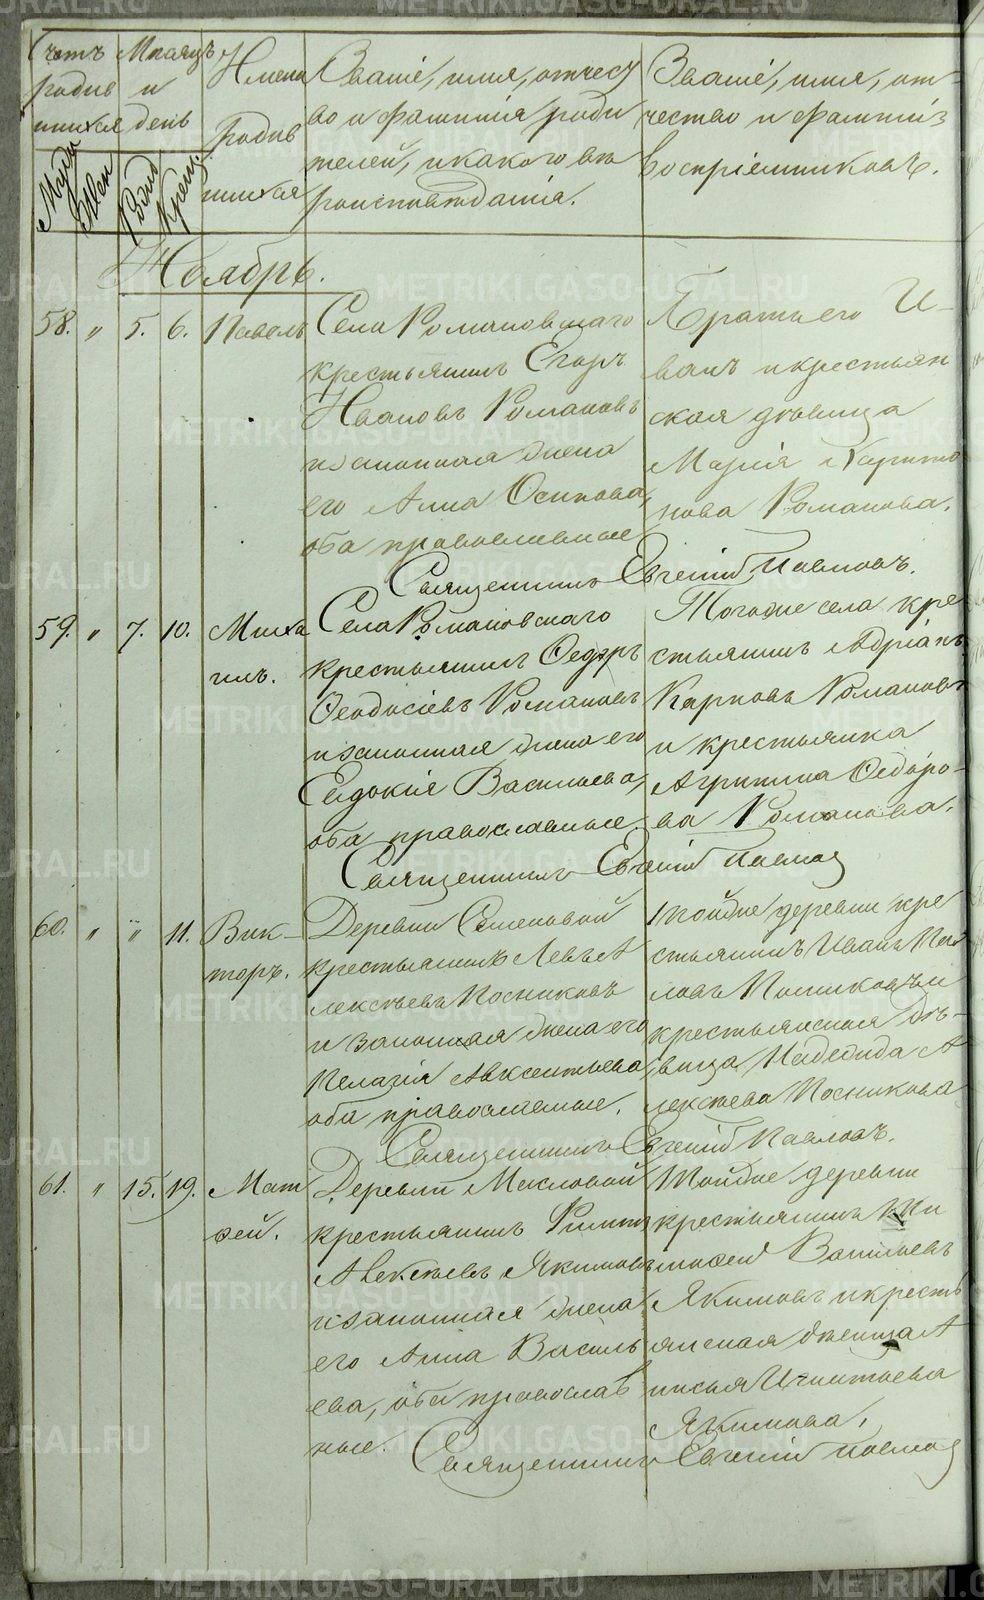 Счетъ родив шихся
Муж Жен
Мѣсяцъ и день
Рожд Крещ.
Имена родив шихся
Званіе, имя, отчест
во и фамилія роди
телей, и какого вѣ
роисповѣданія.
Званіе, имя, от-
чество и фамилія
воспріемниковъ.
Ноябрь.
58. " 5. 6. Павелъ
Села Романовскаго
крестьянинъ Егоръ
Ивановъ Романовъ
и законная жена
его Анна Осипова,
оба православные
Братъ его И-
ванъ и крестьян
ская дѣвица
Марія Харито
нова Романова.
Священникъ Евгеній Павловъ.
59. " 7. 10. Миха
илъ.
Села Романовскаго
крестьянинъ Ѳедоръ
Ѳеодосіевъ Романовъ
и законная жена его
Евдокія Васильева,
оба православные
Тогоже села кре
стьянинъ Адріанъ
Карповъ Романовъ
и крестьянка
Агрипина Ѳедоро-
ва Романова.
Священникъ Евгеній Павлов
60. " " 11. Вик-
торъ.
Деревни Семеновой
крестьянинъ Левъ А
лексѣевъ Посниковъ
и законная жена его
Пелагія Авксентьева,
оба православные.
Тойже деревни кре
стьянинъ Иванъ Пав
ловъ Посниковъ и
крестьянская дѣ-
вица Надежда А
лексѣева Посникова
Священникъ Евгеній Павловъ.
61. " 15. 19. Мат
ѳей.
Деревни Масловой
крестьянинъ Филипъ
Алексѣевъ Якимовъ
и законная жена
его Анна Василь
ева, оба православ
ные.
Тойже деревни
крестьянинъ Ти
моѳей Васильевъ
Якимовъ и кресть
янская женщ А
нисья Игнатьева
Якимова.
Священникъ Евгеній Павлов
METRIKI.GASO-URAL.RU